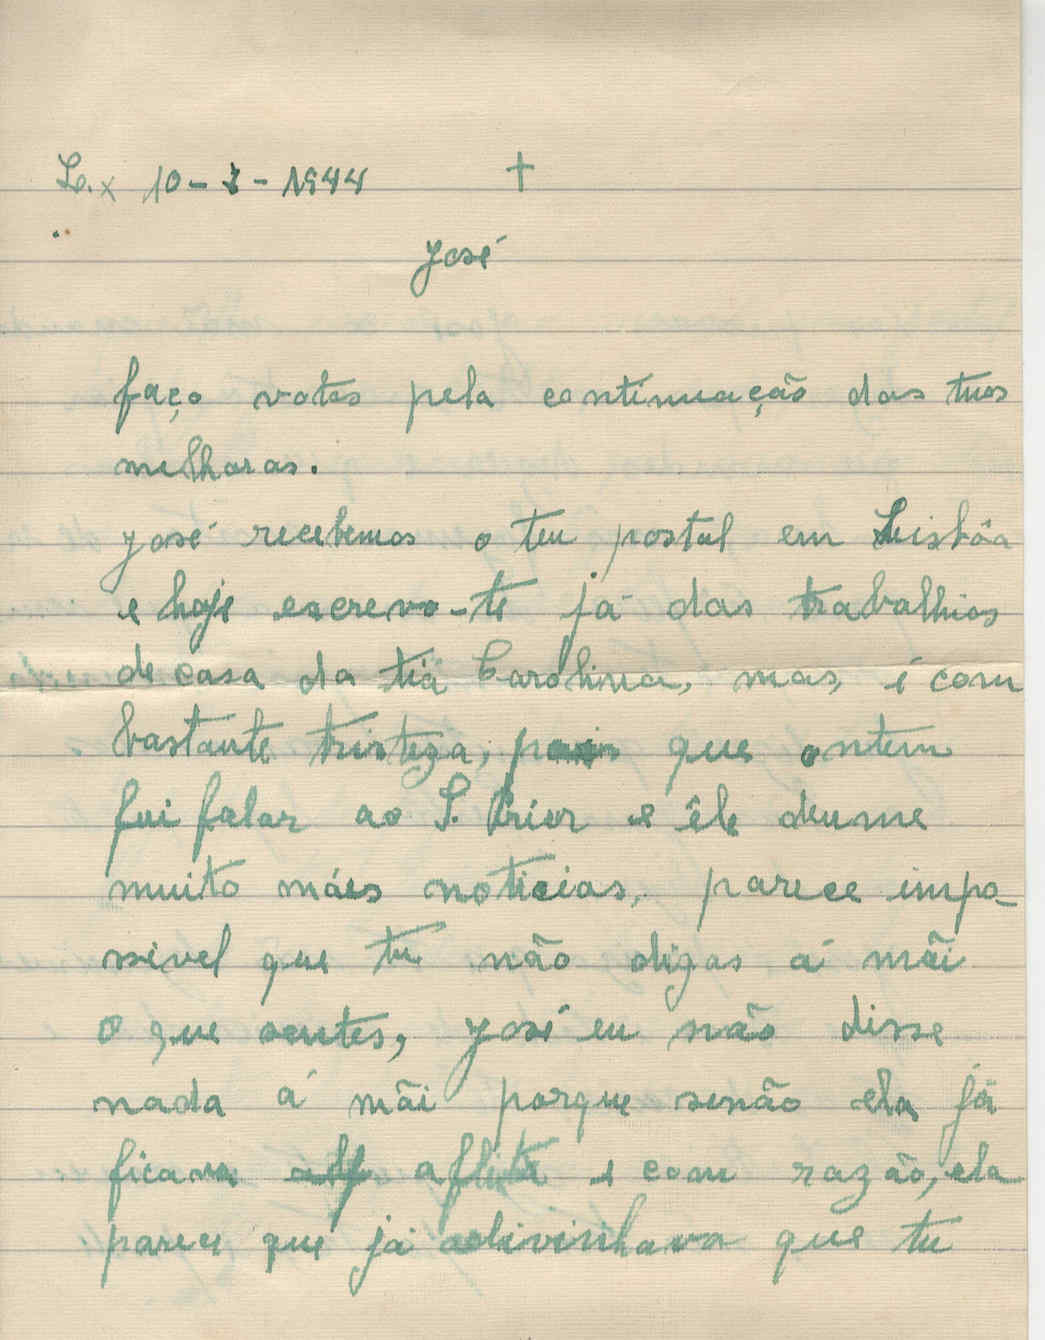 Lx 10-7-1944 †
José
faço votos pela continuação das tuas
melhoras.
José recebemos o teu postal em Lisbôa
e hoje escrevo-te já das trabalhios
de casa da tiá Carolina, mas, é com
bastante tristeza, que ontem
fui falar ao S. Prior e êle deume
muito máes noticias, parece impo-
sivel que tu não digas á mãi
o que sentes, José eu não disse
nada á mãi porque senão ela já
ficava aflita e com razão, ela
parece que já adivinhava que tu